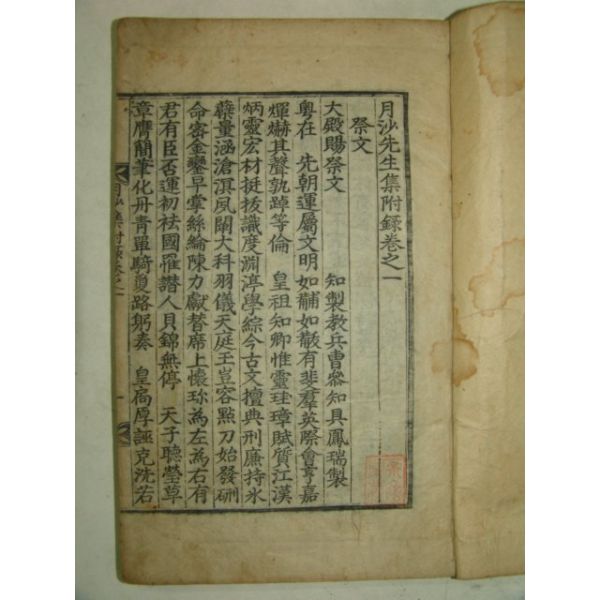 月沙先生集附錄卷之一
祭文
大殿賜祭文 知製敎兵曹參知具鳳瑞製
粤在 先朝運屬文明如黼如黻有斐羣英際會亨嘉
煇爀其聲孰踔等倫 皇祖知卿惟靈珪璋賦質江漢
炳靈宏材挺拔識度淵渟學綜今古文擅典刑廉持氷
蘗量涵滄溟夙闡大科羽儀天庭王豈容點刀始發硎
命客金鑾早掌絲綸陳力獻替席上懷珍爲左爲右有
君有臣否運初袪國罹譖人貝錦無停 天子聽瑩草
章膺簡筆化丹靑單騎敻路躬奏 皇扃厚誣克洗若
月沙集附錄卷之一
一